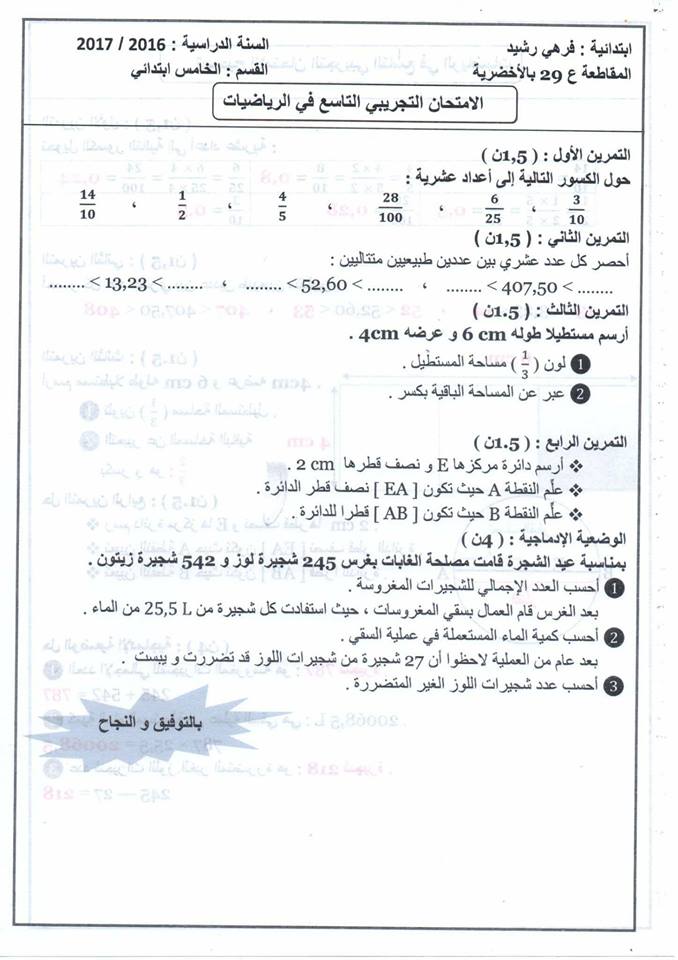 ابتدائية : فرهي رشيد
السنة الدراسية : 2016 / 2017
المقاطعة ع 29 بالأخضرية
القسم : الخامس ابتدائي
الامتحان التجريبي التاسع في الرياضيات
التمرين الأول : ( 1,5ن )
حول الكسور التالية إلى أعداد عشرية :
3/10 ، 6/25 ، 28/100 ، 4/5 ، 1/2 ، 14/10
التمرين الثاني : ( 1,5ن )
أحصر كل عدد عشري بين عددين طبيعيين متتاليين :
........ < 13,23 < ........ ، ........ < 52,60 < ........ ، ........ < 407,50 < ........
التمرين الثالث : ( 1.5ن )
أرسم مستطيلا طوله 6 cm و عرضه 4cm .
1 لون ( 1/3 ) مساحة المستطيل .
2 عبر عن المساحة الباقية بكسر .
التمرين الرابع : ( 1.5ن )
❖ أرسم دائرة مركزها E و نصف قطرها 2 cm .
❖ علّم النقطة A حيث تكون [ EA ] نصف قطر الدائرة .
❖ علّم النقطة B حيث تكون [ AB ] قطرا للدائرة .
الوضعية الإدماجية : ( 4ن )
بمناسبة عيد الشجرة قامت مصلحة الغابات بغرس 245 شجيرة لوز و 542 شجيرة زيتون .
1 أحسب العدد الإجمالي للشجيرات المغروسة .
بعد الغرس قام العمال بسقي المغروسات ، حيث استفادت كل شجيرة من 25,5 L من الماء .
2 أحسب كمية الماء المستعملة في عملية السقي .
بعد عام من العملية لاحظوا أن 27 شجيرة من شجيرات اللوز قد تضررت و يبست .
3 أحسب عدد شجيرات اللوز الغير المتضررة .
بالتوفيق و النجاح